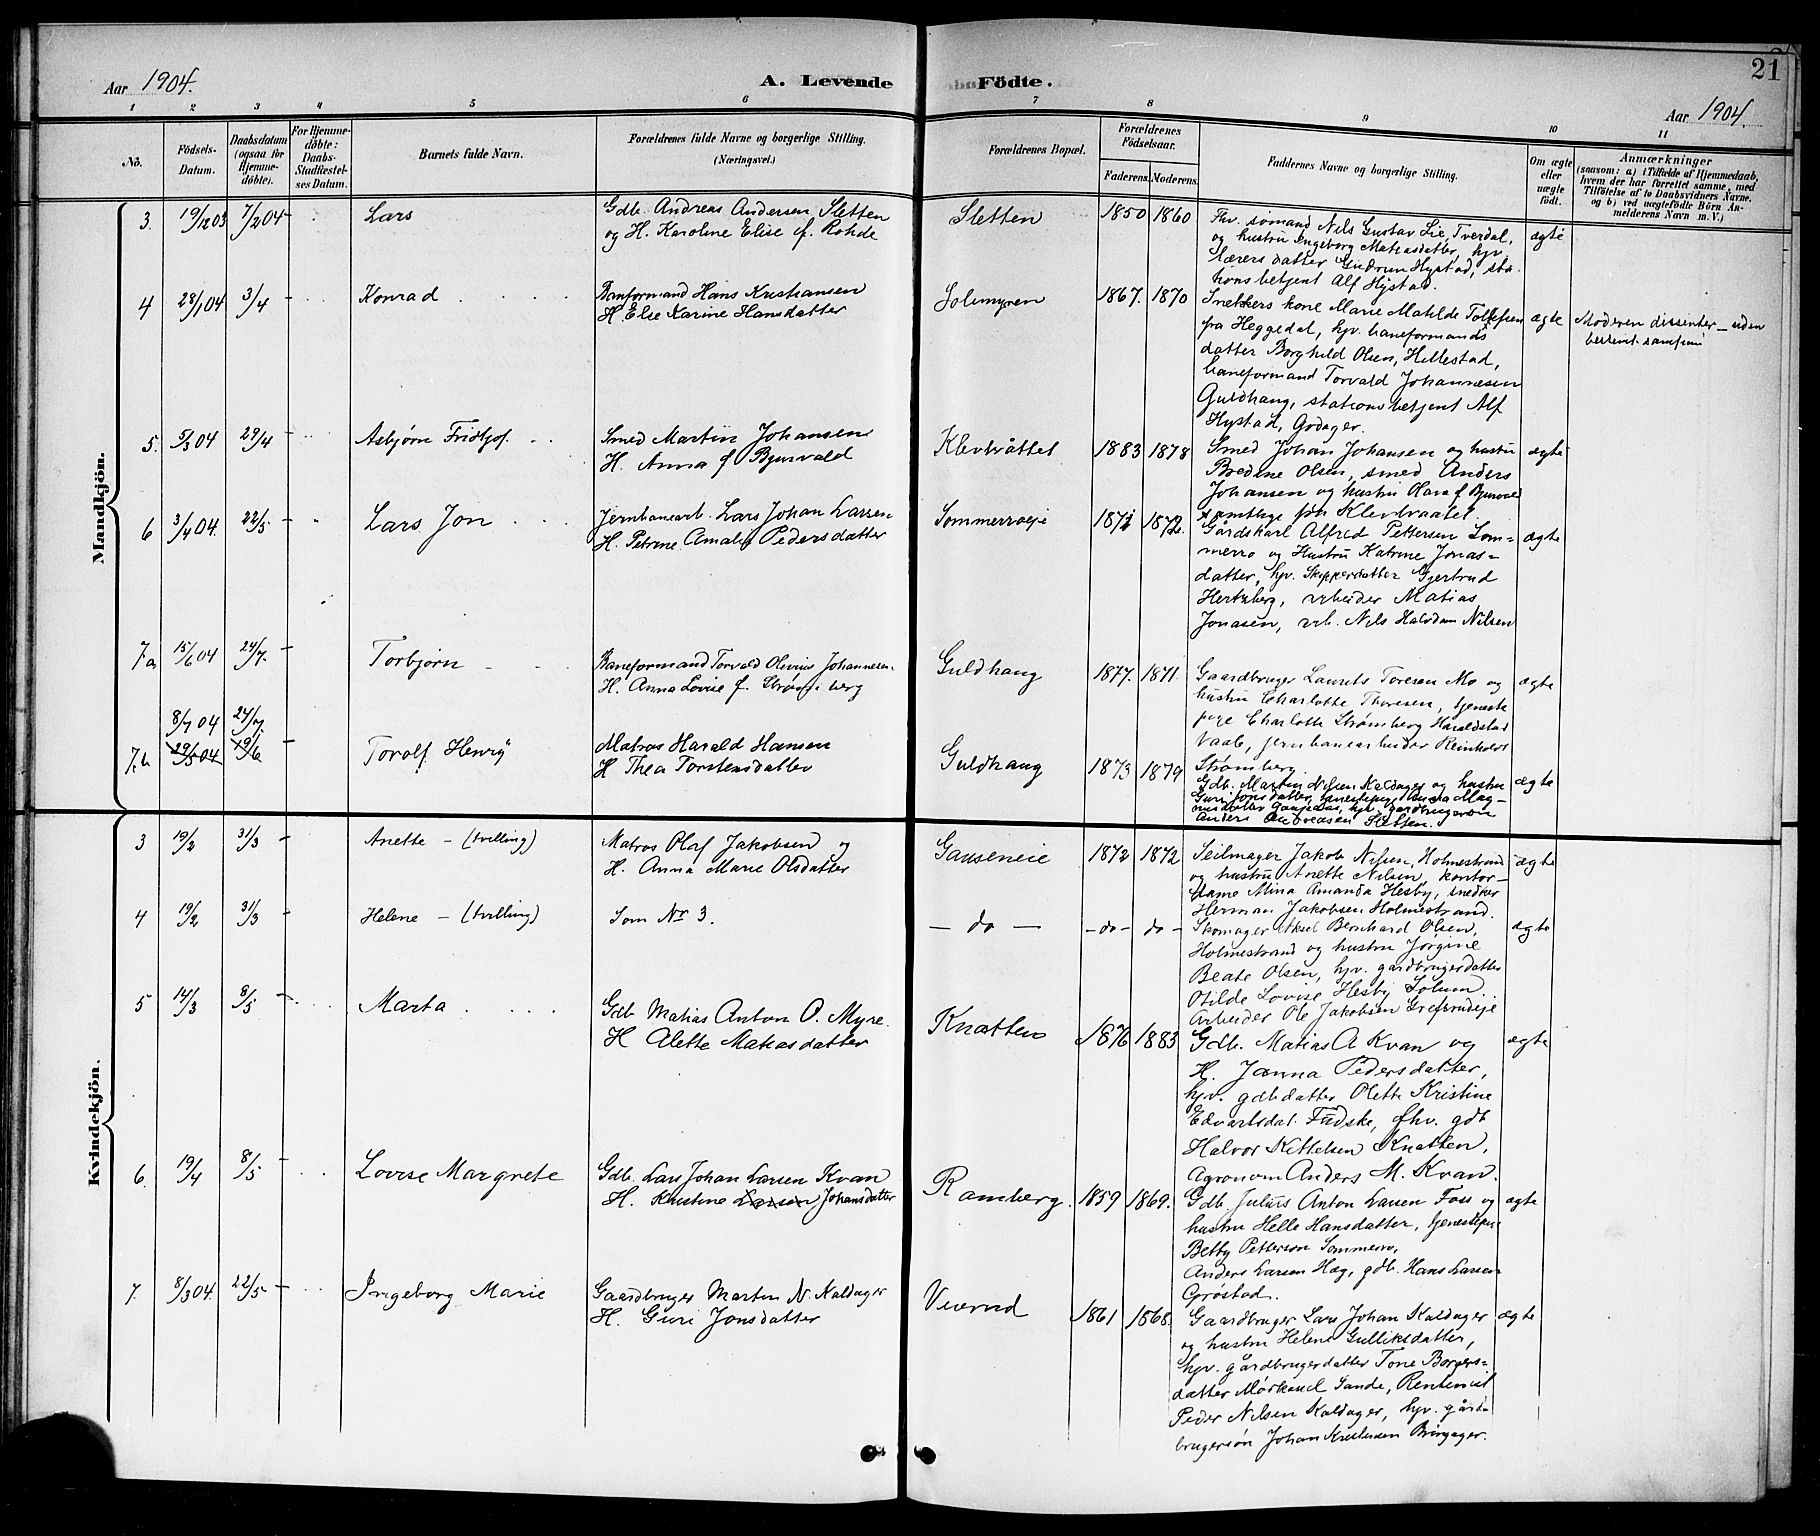 21
Aar 1904.
A. Levende
Födte.
Aar 1904.
1 2 3 4 5 6 7 8 9 10 11
Nö.
Födsels-
Datum.
Daabsdatum
(ogsaa for
Hjemme-
døbte).
For Hjemme-
døbte:
Daabs-
Stadfæstel-
ses Datum.
Barnets fulde Navn.
Forældrenes fulde Navne og borgerlige Stilling.
(Næringsvei.)
Forældrenes Bopæl.
Forældrenes
Födselsaar.
Faderens. Moderens.
Faddernes Navne og borgerlige Stilling.
Om ægte
eller
uægte
födt.
Anmærkninger
(saasom: a) i Tilfælde af Hjemmedaab,
hvem der har forrettet samme, med
Tilföielse af to Daabsvidners Navne,
og b) ved uægtefödte Börn An-
melderens Navn m. V.)
Mandkjön.
3. 19/12 03 7/2 04 - Lars
Gdb. Andreas Andersen, Sletten
og H. Karoline Elise f. Rohde
Sletten 1850 1860
Fhv. sømand Nils Gustav Lie, Tverdal,
og hustru Ingeborg Mateasdatter, hjv.
lærersdatter Gudrun Hystad, sta-
tionsbetjent Alf Hystad.
ægte
4 28/1 04 3/4 - Konrad
Banformand Hans Kristiansen
H. Else Karine Hansdatter
Solemyren 1867. 1870
Snekkers kone Marie Matilde Tollefsen
fra Heggedal, hjv. baneformands
datter Borghild Olsen, Hillestad,
baneformand Torvald Johannesen
Guldhaug, stationsbetjent Alf
Hystad, Godager.
ægte
Moderen dissenter - uden
bestemt samfun
5. 5/3 04 29/4 - Asbjørn Fridtjof
Smed Martin Johansen
H. Anna f Bjurvald
Klevbråttet 1883 1878
Smed Johan Johansen og hustru
Bredine Olsen, smed Anders
Johansen og hustru Olava f Bjurvald
samtlige fra Klevbraatet
ægte
6 3/4 04. 22/5 - Lars Jon
Jernbanearb. Lars Johan Larsen
H. Petrine Amalie Pedersdatter
Sommerroeje 1871 1872.
Gårdskarl Alfred Pettersen Som-
merro og Hustru Katrine Jonas-
datter, hjv. Skipperdatter Gjertrud
Hertzberg, arbeider Matias
Jonasen, arb. Nils Halvdan Nilsen
ægte
7a 15/6 04 24/7. Torbjørn
Baneformand Torvald Olivius Johannesen
H. Anna Lovise f. Strømberg
Guldhaug 1877. 1871.
Gaardbruger Laurits Toresen Mo og
hustru Charlotte Thoresen, tjeneste
pige Charlotte Strømberg Haraldstad
Vaale, jernbanearbeider Reinholdt
Strømberg
ægte
8/7 04 24/7
7.b 29/5 04 19/6 - Torolf Henry
Matros Harald Hansen
H Thea Torstensdatter
Guldhaug 1873 1879
Gdb. Martin Nilsen Kaldager og hustru
Guri Jonsdatter, tjenestepige Anna Mag-
nusdatter, hjv. gardbrugersøn
Anders Andreasen Sletten.
ægte
Kvindekjön.
3 19/2 31/3 Anette - (tvilling)
Matros Olaf Jakobsen og
H. Anna Marie Olsdatter
Gauseneie 1872 1872
Seilmager Jakob Nilsen, Holmestrand
og hustru Anette Nilsen, kontor-
dame Mina Amanda Hesby, snedker
Herman Jakobsen Holmestrand.
ægte
4 19/2 31/3 Helene - (tvilling)
Som Nr 3.
- do - - do - do -
Skomager Aksel Bernhard Olsen,
Holmestrand og hustru Jørgine
Beate Olsen, hjv. gårdbrugerdatter
Otilde Lovise Hesby Solum
Arbeider Ole Jakobsen Grefsrudeje
ægte
5 14/3 8/5 - Marta
Gdb Matias Anton O. Myre.
H Alette Mateasdatter
Knatten 1876 1883
Gdb. Matias A Kvan og
H. Janna Pedersdatter,
hjv. gdbdatter Olette Kristine
Edvartsdat. Fuske, fhv. gdb
Halvor Kittelsen Knatten,
Agronom Anders M. Kvan.
ægte
6. 19/4 8/5 Lovise Margrete
Gdb. Lars Johan Larsen Kvan
H. Kristine Larsen Johansdatter
Ramberg. 1859 1869.
Gdb. Julius Anton Larsen Foss og
hustru Helle Hansdatter, tjenestepige
Betty Petterson Sommerro,
Anders Larsen Hæg, gdb. Hans Larsen
Grøstad.
ægte
7. 8/3 04. 22/5 - Ingeborg Marie
Gaardbruger Martin N. Kaldager
H. Guri Jonsdatter
Vierud 1861 1868.
Gaardbruger Lars Johan Kaldager
og hustru Helene Gulliksdatter,
hjv. gårdbrugerdatter Tone Borgers-
datter Mørkaud Sande, Rentenist
Peder Nilsen Kaldager, hjv. gård-
brugersøn Johan Kristensen Bringager.
ægte